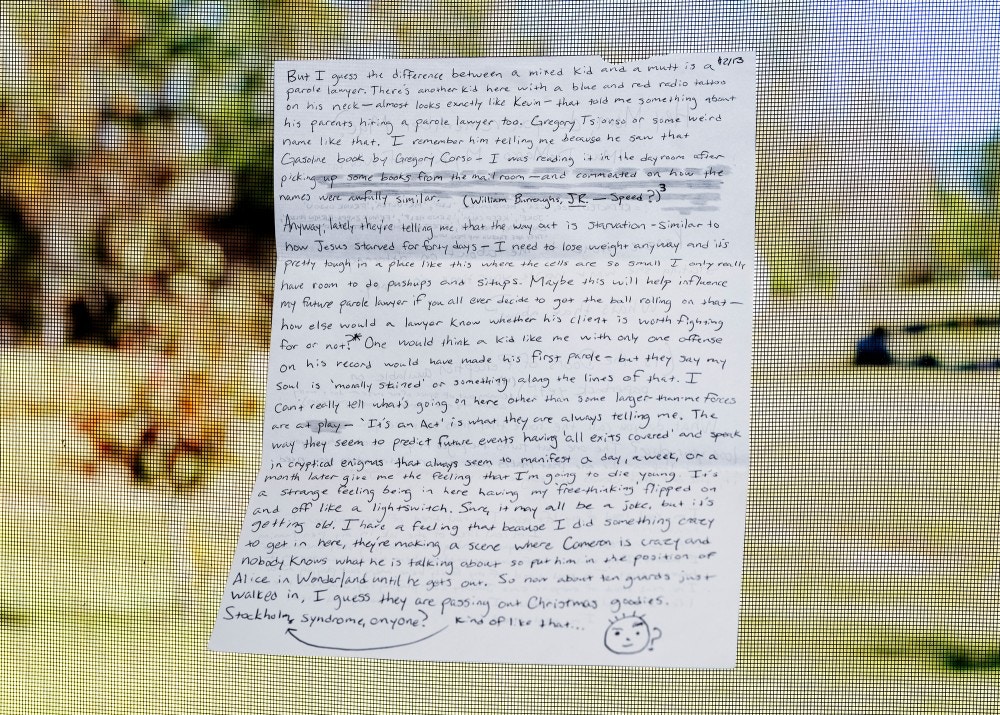 12/13
But I guess the difference between a mixed kid and a mutt is a
parole lawyer. There's another kid here with a blue and red radio tattoo
on his neck — almost looks exactly like Kevin — that told me something about
his parents hiring a parole lawyer too. Gregory Tsiorso or some weird
name like that. I remember him telling me because he saw that
Gasoline book by Gregory Corso - I was reading it in the dayroom after
picking up some books from the mail room — and commented on how the
names were awfully similar. (William Burroughs, JR. — Speed?)3
Anyway, lately they're telling me that the way out is starvation - similar to
how Jesus starved for forty days - I need to lose weight anyway and it's
pretty tough in a place like this where the cells are so small I only really
have room to do pushups and situps. Maybe this will help influence
my future parole lawyer if you all ever decide to get the ball rolling on that —
how else would a lawyer know whether his client is worth fighting
for or not?* One would think a kid like me with only one offense
on his record would have made his first parole - but they say my
soul is 'morally stained' or something along the lines of that. I
can't really tell what's going on here other than some larger-than-me forces
are at play - 'It's an Act' is what they are always telling me. The
way they seem to predict future events having 'all exits covered' and speak
in cryptical enigmas that always seem to manifest a day, a week, or a
month later give me the feeling that I'm going to die young. It's
a strange feeling being in here having my 'free-thinking' flipped on
and off like a lightswitch. Sure, it may all be a joke, but it's
getting old. I have a feeling that because I did something crazy
to get in here, they're making a scene where Cameron is crazy and
nobody knows what he is talking about so put him in the position of
Alice in Wonderland until he gets out. So now about ten guards just
walked in, I guess they are passing out Christmas goodies.
Stockholm syndrome, anyone? Kind of like that...
?